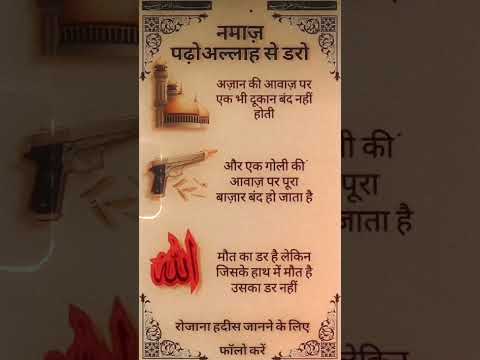 नमाज़
पढ़ोअल्लाह से डरो
अज़ान की आवाज़ पर
एक भी दूकान बंद नहीं
होती
और एक गोली की
आवाज़ पर पूरा
बाज़ार बंद हो जाता है
الله
मौत का डर है लेकिन
जिसके हाथ में मौत है
उसका डर नहीं
रोजाना हदीस जानने के लिए
फॉलो करें